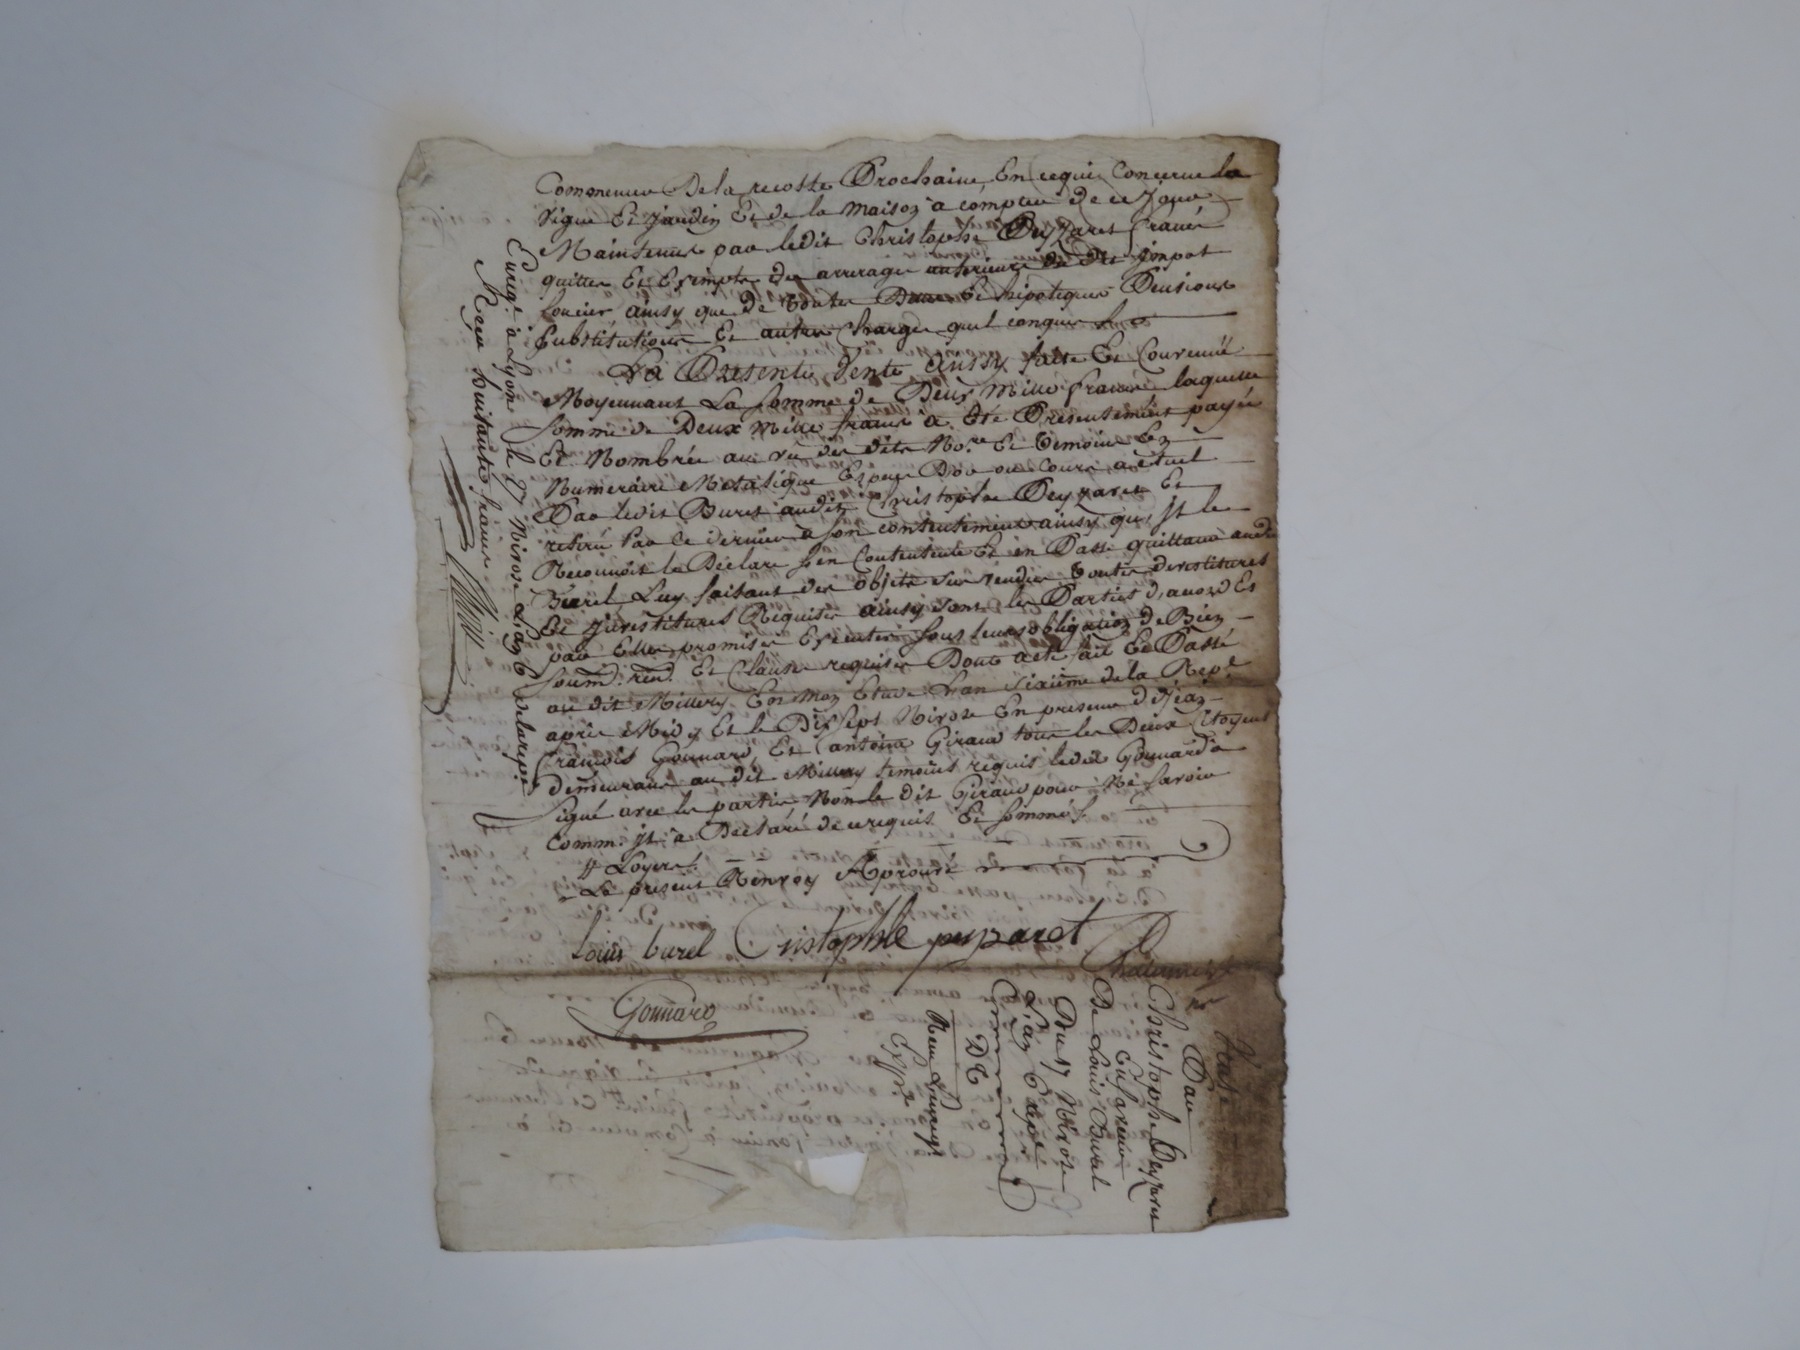 Commencer De la recolte Prochaine, En ce qui Concerne la
vigne Et jardin Et de la maison a compter de ce jour
Maintenus par ledit Christophle Peyzaret francs
quittes Et Exempts des arrerages anterieurs du dit jmpot
foncier ainsy que de toutes Dettes hipoteques Pensions
substitutions Et autres charges quel conques
La Presente Vente ainsy faite Et Convenue
Moyennant La somme de Deux Mille francs laquelle
somme de Deux mille francs a Eté Presentement payée
Et Nombrée au vu des dits No.re Et temoins En
Numeraire Metalique Espece D'or au cours actuel
Par ledit Burel audit Christophle Peyzaret Et
retiré Par Ce dernier a son contentement ainsy qu'jl le
Reconnoit le Déclare s'en Contente Et en Passe quittance audit
Burel Luy faisant des objets sus vendus toutes devestitures
Et jnvestitures Requises ainsy sont les Parties d'acord Et
par Elles promises Executer sous leurs obligation de Bien
soumn. renn. Et Clauses requises Dont acte fait Et Passé
au dit Millery En Mon Etude L'an sixieme de la Rep.e
après Midy Et le Dix sept Nivose En presence de Jean
francois Gonnard, Et antoine Giraud tous les Deux Citoyens
Demeurans au dit Millery temoins requis ledit Gonnard a
signé avec les parties Non le dit Giraud pour Ne savoir
Comme jl a Declaré de ce requis Et sommé
# Loyers
Le present Renvoy Aprouvé
Louis burel Cristophle peyzaret
Gonnard
Enreg.é à Lyon le 27 Nivose L'an 6 de la rep.e
Reçu huitante francs
Vente
Par
Christophle Peyzaret
En faveur
De Louis Burel
Du 17 Nivose
L'an 6 Rep.e
Exp.e